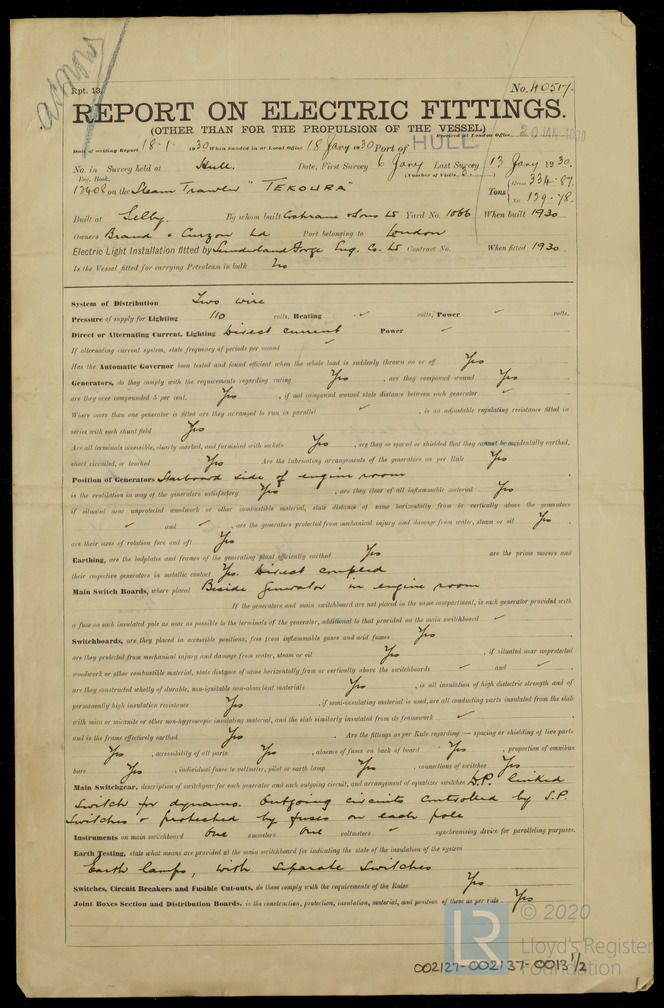 Rpt. 13.
No. 40517.
REPORT ON ELECTRIC FITTINGS.
(OTHER THAN FOR THE PROPULSION OF THE VESSEL)
Received at London Office 20 JAN 1930
Date of writing Report 18 · 1 · 1930 When handed in at Local Office 18 Jany 1930 Port of HULL
No. in Survey held at Hull. Date, First Survey 6 Jany Last Survey 13 Jany 1930.
Reg. Book. (Number of Visits 3.)
on the Steam Trawler "TEKOURA" Tons Gross 334.87. Net 129.78.
Built at Selby. By whom built Cochrane & Sons Ld Yard No. 1066 When built 1930
Owners Brand & Curzon Ld Port belonging to London
Electric Light Installation fitted by Sunderland Forge Eng. Co. Ld Contract No. When fitted 1930
Is the Vessel fitted for carrying Petroleum in bulk No
System of Distribution Two wire
Pressure of supply for Lighting 110 volts, Heating ✓ volts, Power ✓ volts.
Direct or Alternating Current, Lighting Direct current Power ✓
If alternating current system, state frequency of periods per second ✓
Has the Automatic Governor been tested and found efficient when the whole load is suddenly thrown on or off Yes
Generators, do they comply with the requirements regarding rating Yes, are they compound wound Yes
are they over compounded 5 per cent. Yes, if not compound wound state distance between each generator ✓
Where more than one generator is fitted are they arranged to run in parallel ✓, is an adjustable regulating resistance fitted in
series with each shunt field Yes
Are all terminals accessible, clearly marked, and furnished with sockets Yes, are they so spaced or shielded that they cannot be accidentally earthed,
short circuited, or touched Yes Are the lubricating arrangements of the generators as per Rule Yes
Position of Generators Starboard side of engine room
is the ventilation in way of the generators satisfactory Yes, are they clear of all inflammable material Yes
if situated near unprotected woodwork or other combustible material, state distance of same horizontally from or vertically above the generators
✓ and ✓, are the generators protected from mechanical injury and damage from water, steam or oil Yes,
are their axes of rotation fore and aft Yes
Earthing, are the bedplates and frames of the generating plant efficiently earthed Yes are the prime movers and
their respective generators in metallic contact Yes. Direct coupled
Main Switch Boards, where placed Beside Generator in engine room
If the generators and main switchboard are not placed in the same compartment, is each generator provided with
a fuse on each insulated pole as near as possible to the terminals of the generator, additional to that provided on the main switchboard ✓
Switchboards, are they placed in accessible positions, free from inflammable gases and acid fumes Yes,
are they protected from mechanical injury and damage from water, steam or oil Yes, if situated near unprotected
woodwork or other combustible material, state distance of same horizontally from or vertically above the switchboards ✓ and ✓,
are they constructed wholly of durable, non-ignitable non-absorbent materials Yes, is all insulation of high dielectric strength and of
permanently high insulation resistance Yes, if semi-insulating material is used, are all conducting parts insulated from the slab
with mica or micanite or other non-hygroscopic insulating material, and the slab similarly insulated from its framework ✓,
and is the frame effectively earthed Yes. Are the fittings as per Rule regarding:— spacing or shielding of live parts
Yes, accessibility of all parts Yes, absence of fuses on back of board Yes, proportion of omnibus
bars Yes, individual fuses to voltmeter, pilot or earth lamp Yes, connections of switches Yes
Main Switchgear, description of switchgear for each generator and each outgoing circuit, and arrangement of equalizer switches D.P. linked
switch for dynamo. Outgoing circuits controlled by S.P.
switches & protected by fuses on each pole
Instruments on main switchboard One ammeters One voltmeters ✓ synchronising device for paralleling purposes.
Earth Testing, state what means are provided at the main switchboard for indicating the state of the insulation of the system
Earth lamps, with separate switches
Switches, Circuit Breakers and Fusible Cut-outs, do these comply with the requirements of the Rules Yes
Joint Boxes Section and Distribution Boards, is the construction, protection, insulation, material, and position of these as per rule Yes
LR
© 2020
Lloyd's Register
Foundation
002127-002137-0013 1/2